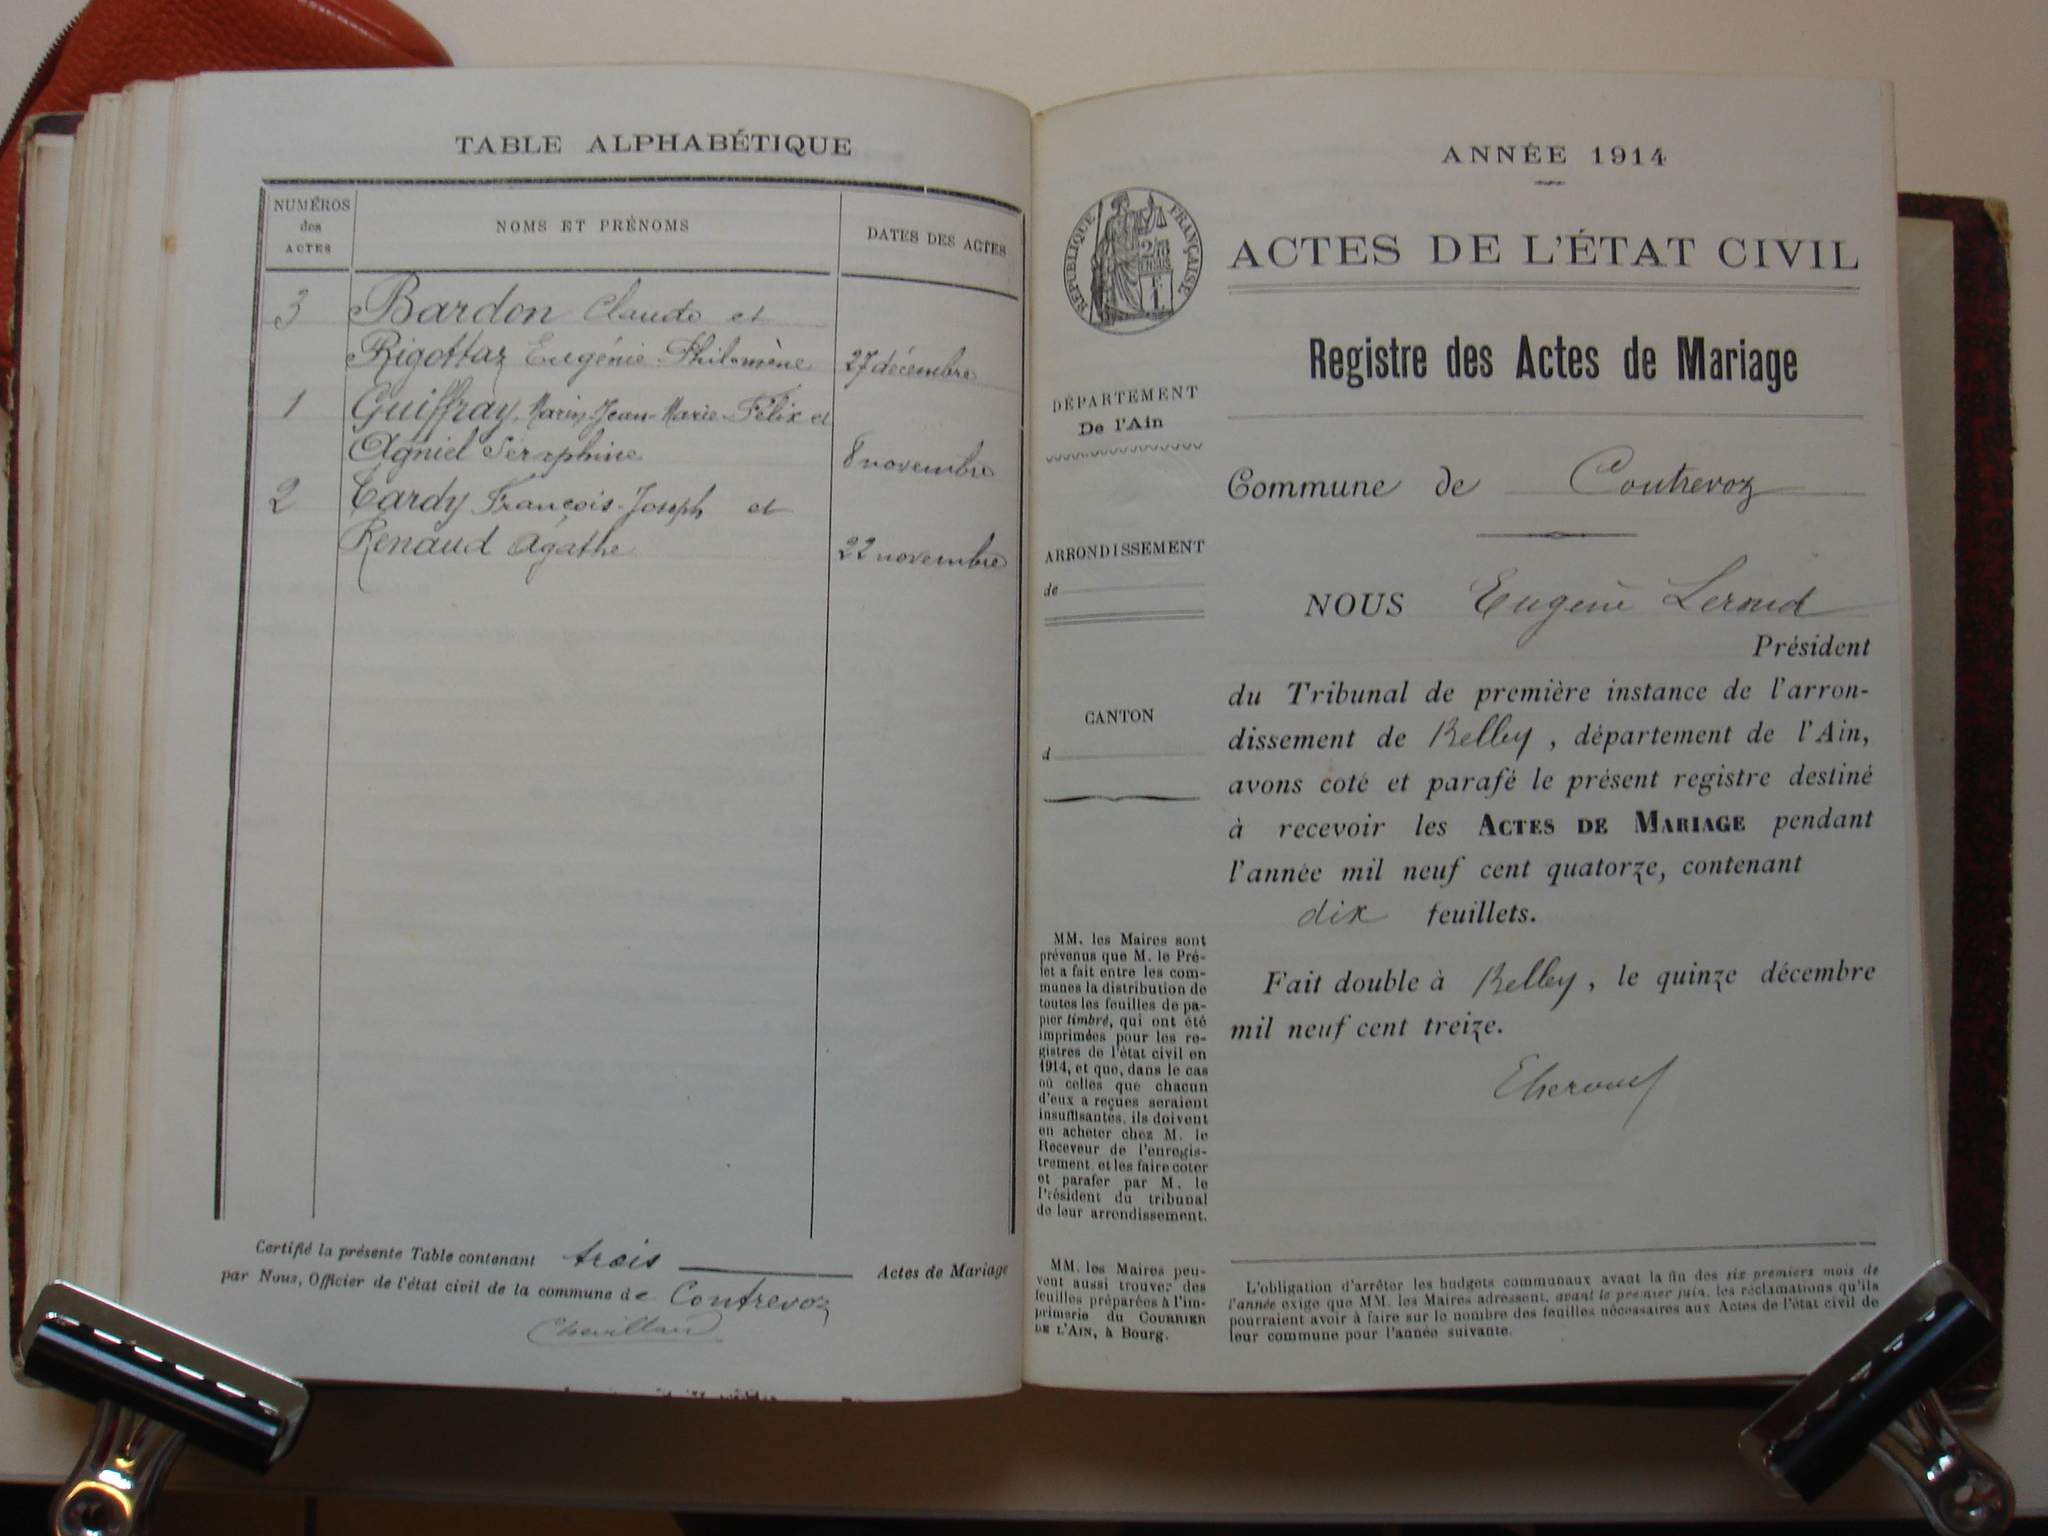 TABLE ALPHABÉTIQUE
NUMÉROS des ACTES
NOMS ET PRÉNOMS
DATES DES ACTES
3 Bardon Claude et
Rigottaz Eugénie-Philomène 27 décembre
1 Guiffray, Marin, Jean-Marie-Félix et
Agniel Séraphine 8 novembre
2 Tardy François-Joseph et
Renaud Agathe 22 novembre
Certifié la présente Table contenant trois Actes de Mariage
par Nous, Officier de l'état civil de la commune de Contrevoz
ANNÉE 1914
RÉPUBLIQUE FRANÇAISE
ACTES DE L'ÉTAT CIVIL
Registre des Actes de Mariage
DÉPARTEMENT
De l'Ain
ARRONDISSEMENT
de
CANTON
d
MM. les Maires sont
prévenus que M. le Pré-
fet a fait entre les com-
munes la distribution de
toutes les feuilles de pa-
pier timbré, qui ont été
imprimées pour les re-
gistres de l'état civil en
1914, et que, dans le cas
où celles que chacun
d'eux a reçues seraient
insuffisantes, ils doivent
en acheter chez M. le
Receveur de l'enregis-
trement, et les faire coter
et parafer par M. le
Président du tribunal
de leur arrondissement.
MM. les Maires peu-
vent aussi trouver des
feuilles préparées à l'im-
primerie du COURRIER
DE L'AIN, à Bourg.
Commune de Contrevoz
NOUS Eugène Leroud
Président
du Tribunal de première instance de l'arron-
dissement de Belley, département de l'Ain,
avons coté et parafé le présent registre destiné
à recevoir les ACTES DE MARIAGE pendant
l'année mil neuf cent quatorze, contenant
dix feuillets.
Fait double à Belley, le quinze décembre
mil neuf cent treize.
L'obligation d'arrêter les budgets communaux avant la fin des six premiers mois de
l'année exige que MM. les Maires adressent, avant le premier juin, les réclamations qu'ils
pourraient avoir à faire sur le nombre des feuilles nécessaires aux Actes de l'état civil de
leur commune pour l'année suivante.